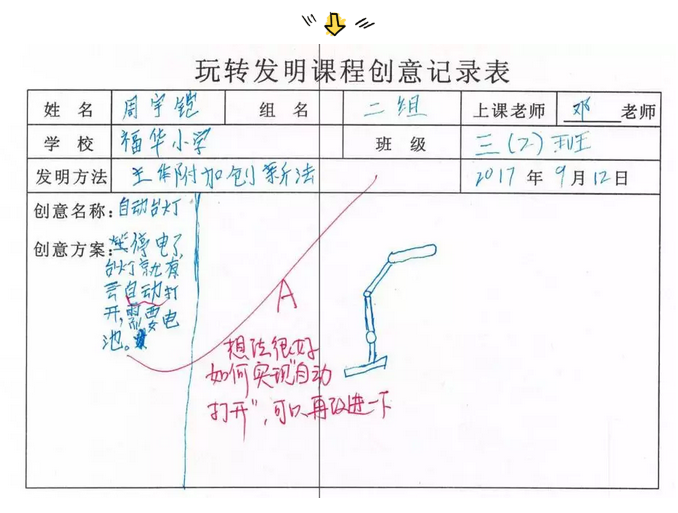 玩转发明课程创意记录表
姓 名 周宇铠 组 名 二组 上课老师 邓 老师
学 校 福华小学 班 级 三(2)班
发明方法 主体附加创新法 2017 年 9 月 12 日
创意名称:自动台灯
创意方案:
停电了,
台灯就有
会自动打
开,需要电
池。
A
想法很好
如何实现"自动
打开",可以再改进一下